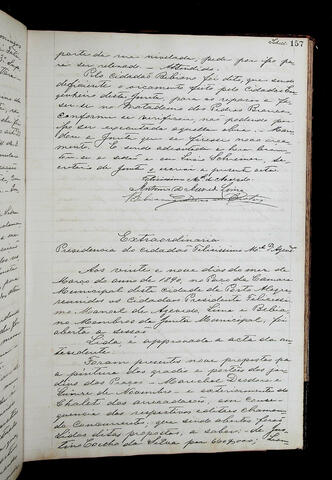 157
parte da rua nivelada, pede por isso pa
ra ser relevado - Attendido.
Pelo Cidadão Bibiano foi dito, que sendo
deficiente o orçamento feito pelo Cidadão En
genheiro desta Junta, para os reparos a fa
zer-se no Matadouro das Pedras Brancas
conforme se verificou, não podendo por
isso ser executada aquella obra - Man
dou a Junta que se fizesse novo orça
mento. E sendo adiantada a hora levan
tou-se a sessão e eu Schreiner, Se
cretario da Junta o escrevi e
Felicissimo Mel. de Azevedo
Antonio de Azevedo Lima
Extraordinaria
Presidencia do Cidadão Felicissimo Mel. d'Azevedo
Aos vinte e nove dias do mez de
Março do anno de 1890, no Paço da Camara
Municipal desta cidade de Porto Alegre,
reunidos os Cidadãos Presidente Felicissi
mo Manoel de Azevedo, Lima e Bibia
no, Membros da Junta Municipal, foi
aberta a sessão.
Lida, é approvada a acta da an
tecedente.
Foram presentes nove propostas pa
a pintura das grades e portões dos jar
dins das Praças - Marechal Deodoro e
Quinze de Novembro e exteriormente do
Chalet da arrecadação, em conse
quencia dos respectivos editaes chaman
do Concurrentes, que sendo abertas foram
lidas ditas propostas, a saber: de Jus
tino Coelho da Silva por